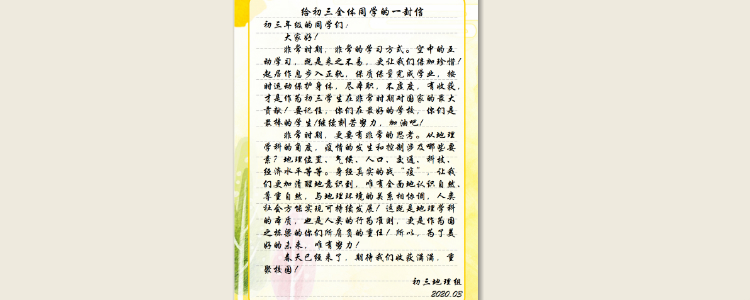 给初三全体同学的一封信
初三年级的同学们：
大家好！
非常时期，非常的学习方式。空中的互
动学习，既是来之不易，更让我们倍加珍惜！
起居作息步入正轨，保质保量完成学业，按
时运动保护身体，尽本职，不虚度，有收获，
才是作为初三学生在非常时期对国家的最大
贡献！要记住，你们在最好的学校，你们是
最棒的学生！继续刻苦努力，加油吧！
非常时期，更要有非常的思考。从地理
学科的角度，疫情的发生和控制涉及哪些要
素？地理位置、气候、人口、交通、科技、
经济水平等等。身经真实的战“疫”，让我
们更加清醒地意识到，唯有全面地认识自然、
尊重自然，与地理环境的关系相协调，人类
社会方能实现可持续发展！这既是地理学科
的本质，也是人类的行为准则，更是作为国
之栋梁的你们所肩负的重任！所以，为了美
好的未来，唯有努力！
春天已经来了，期待我们收获满满，重
聚校园！
初三地理组
2020.03